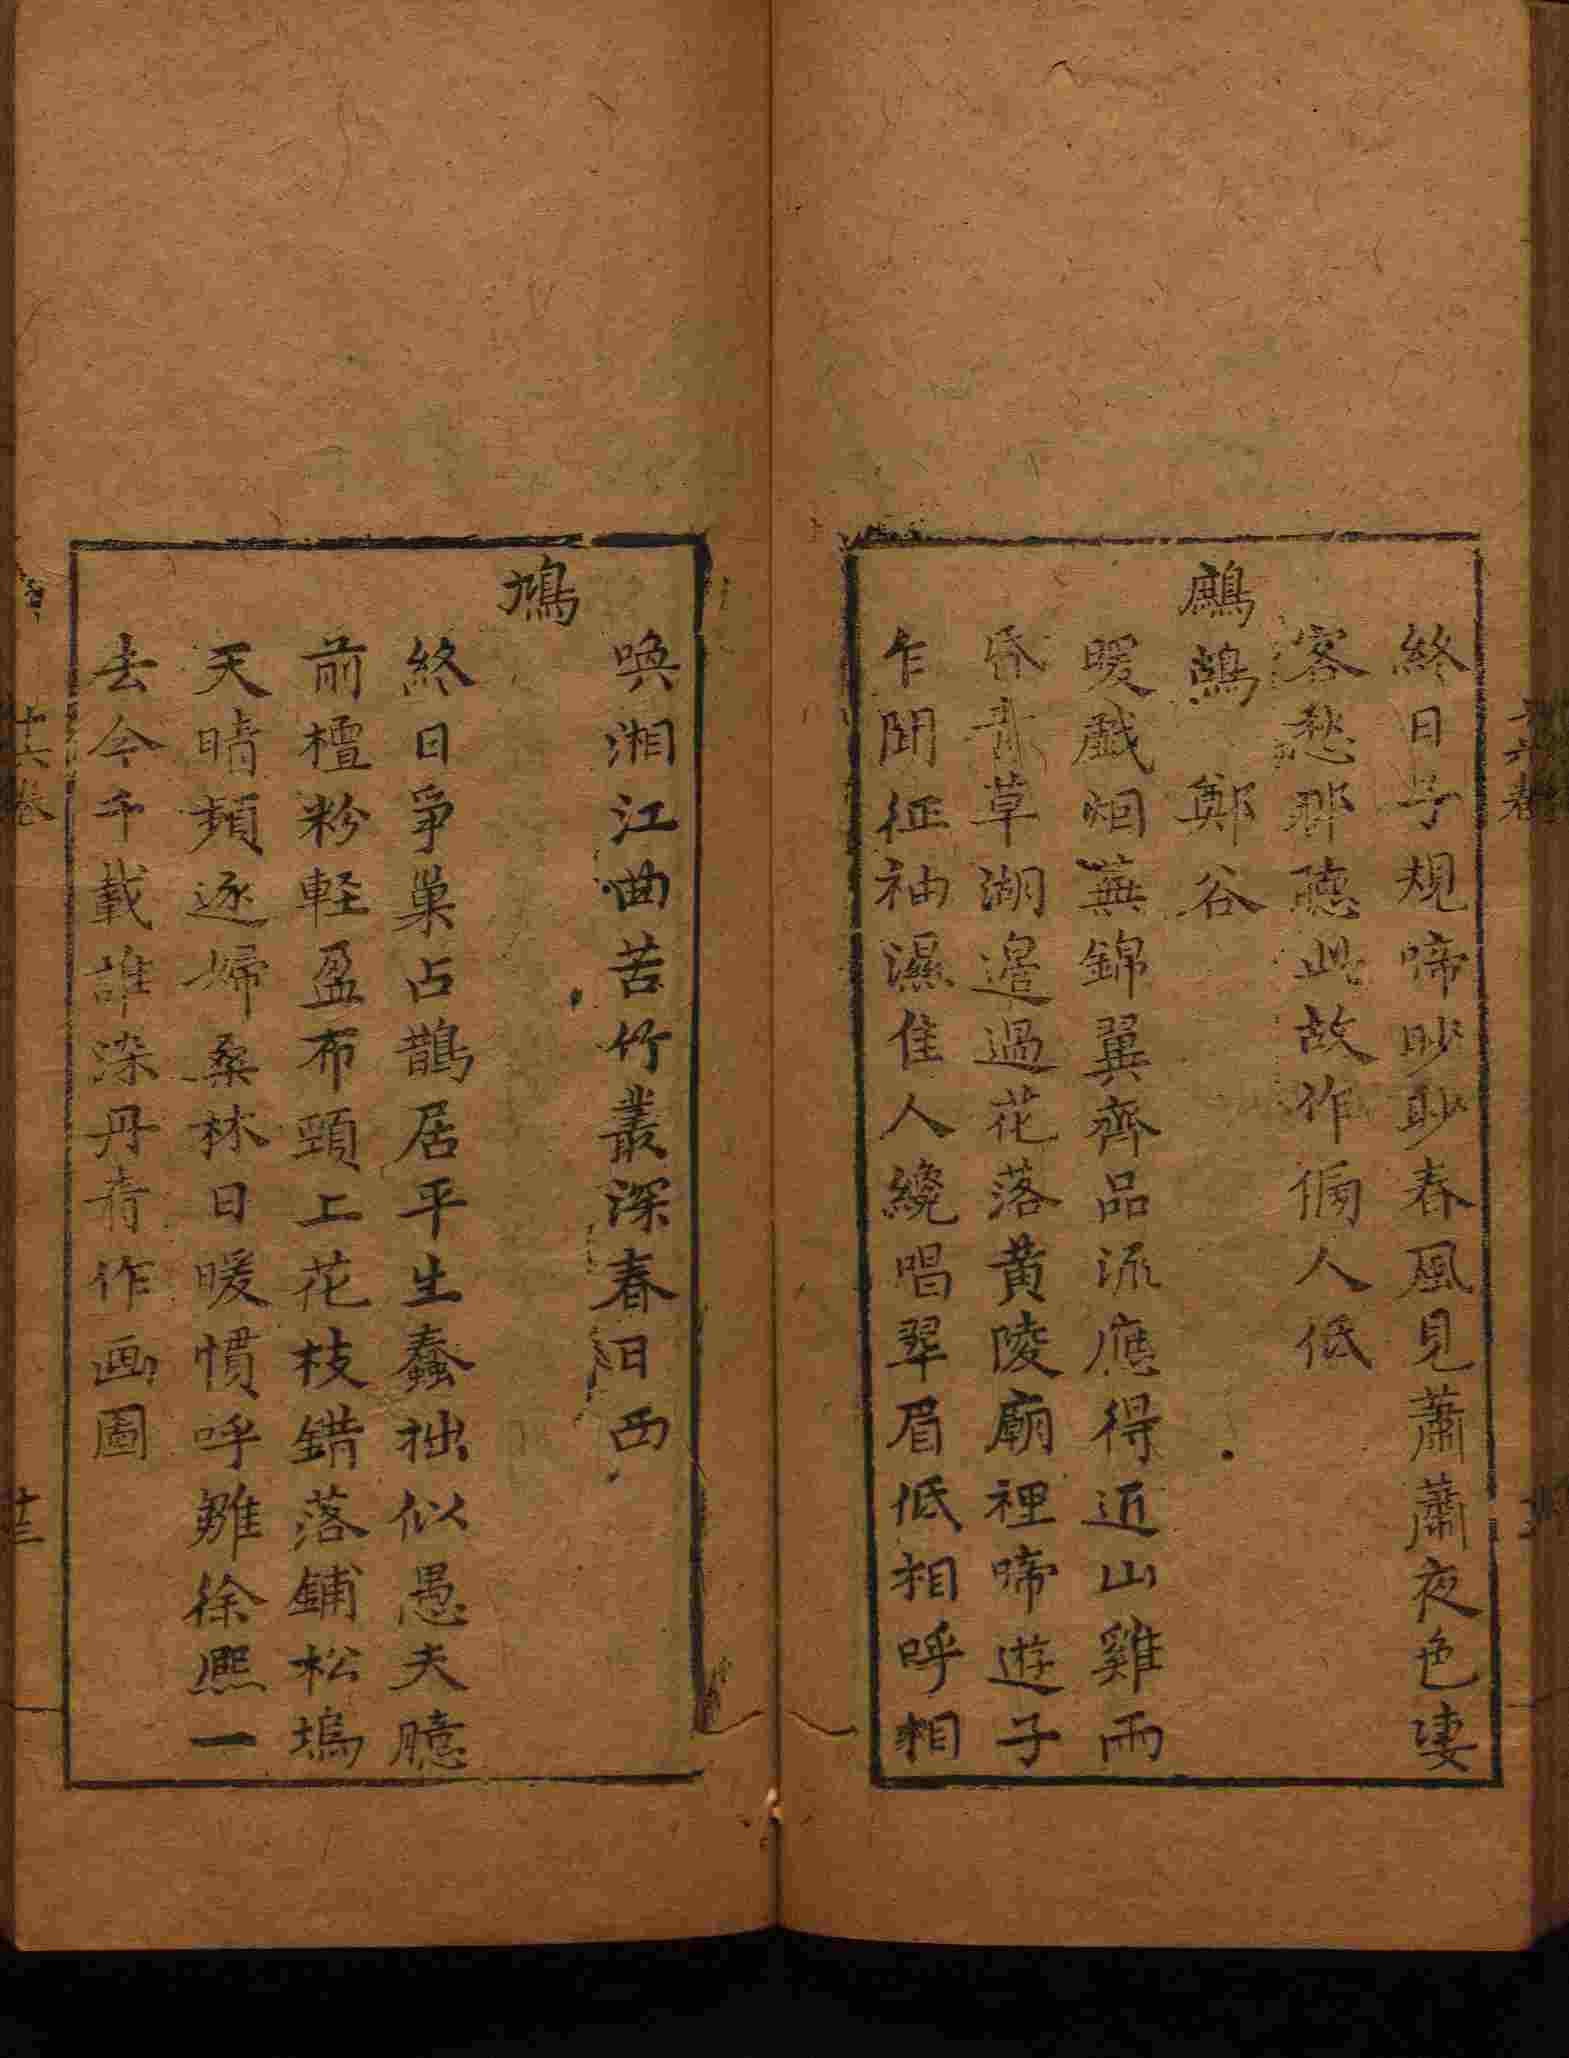 終日子規啼眇眇春風見蕭蕭夜色凄
客愁那聴此故作傍人低
鷓鴣　鄭谷
暖戲烟蕪錦翼齊品流應得近山雞雨
昏青草湖邉過花落黄陵廟裡啼遊子
乍聞征袖濕佳人纔唱翠眉低相呼相
喚湘江曲苦竹叢深春日西
鳩
終日爭巢占鵲居平生蠢拙似愚夫臆
前檀粉軽盈布頸上花枝錯落鋪松塢
天晴頻逐婦桑林日暖慣呼雛徐熙一
去今千載誰染丹青作画圖
十六卷
十三